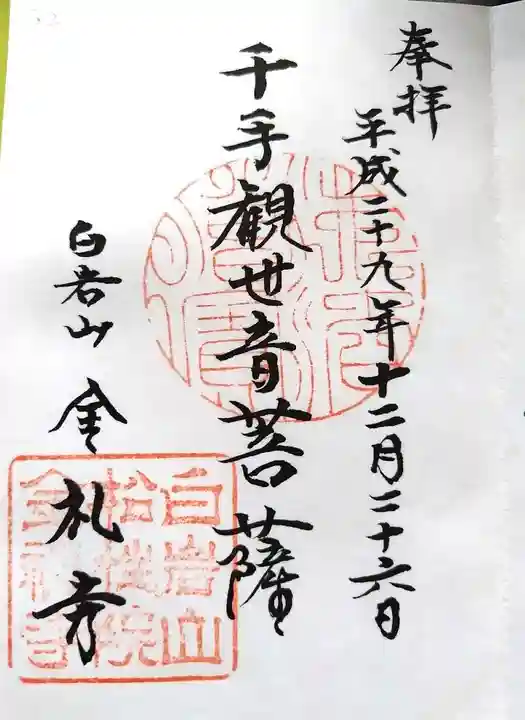 奉拝
平成二十九年十二月二十六日
千手観世音菩薩
白岩山 金礼寺
白岩山
松機院
金礼寺